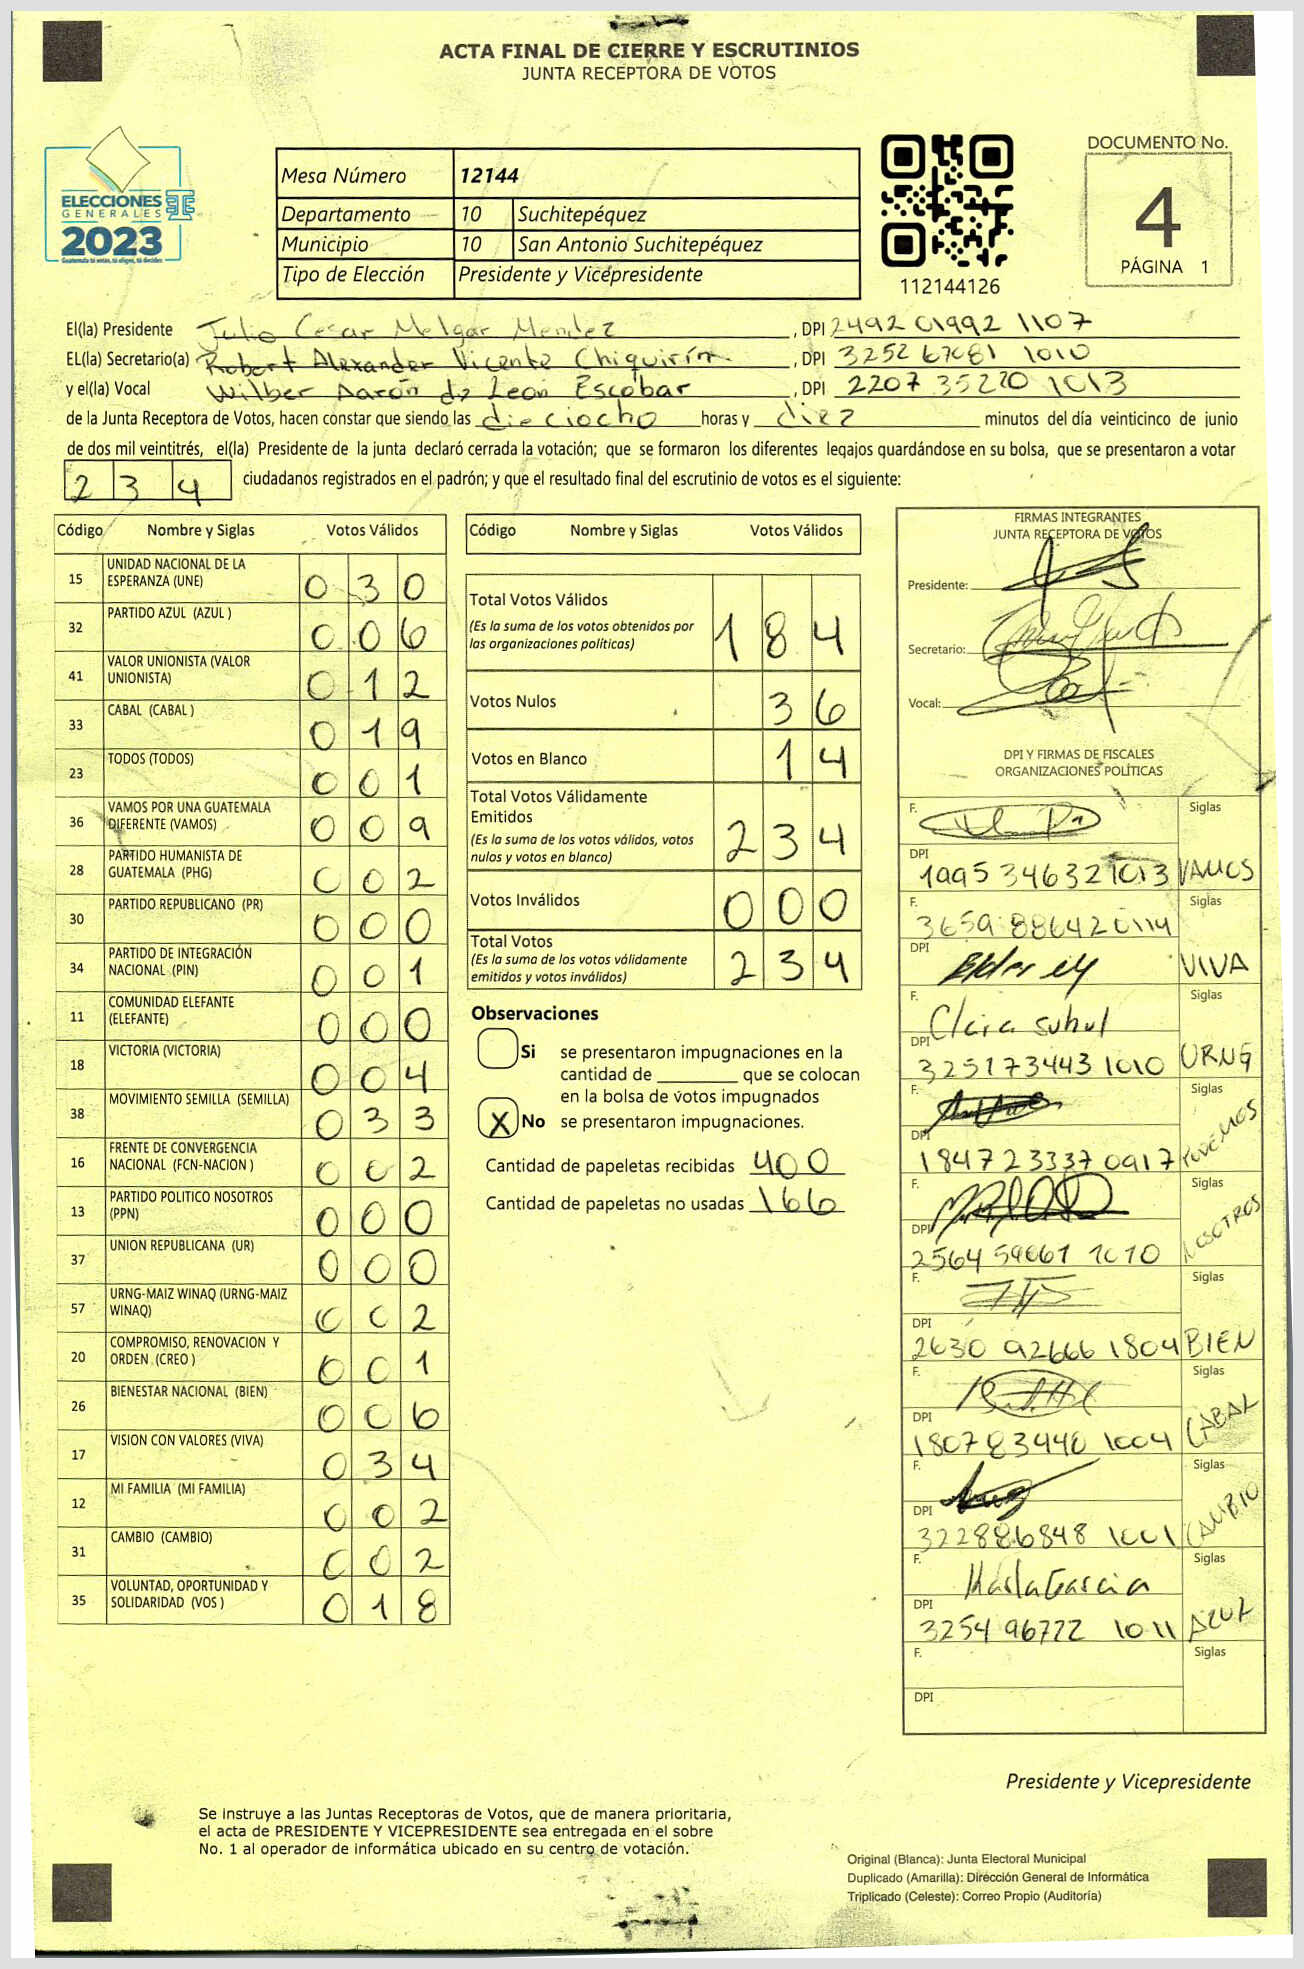 ACTA FINAL DE CIERRE Y ESCRUTINIOS
JUNTA RECEPTORA DE VOTOS
ELECCIONES
GENERALES
2023
Guatemala tú votas, tú eliges, tú decides
Mesa Número 12144
Departamento 10 Suchitepéquez
Municipio 10 San Antonio Suchitepéquez
Tipo de Elección Presidente y Vicepresidente
112144126
DOCUMENTO No.
4
PÁGINA 1
El(la) Presidente Julio Cesar Melgar Mendez, DPI 2492 01992 1107
EL(la) Secretario(a) Robert Alexander Vicente Chiquirín, DPI 3252 67081 1010
y el(la) Vocal Wilber Aarón de León Escobar, DPI 2207 35220 1013
de la Junta Receptora de Votos, hacen constar que siendo las dieciocho horas y diez minutos del día veinticinco de junio
de dos mil veintitrés, el(la) Presidente de la junta declaró cerrada la votación; que se formaron los diferentes legajos guardándose en su bolsa, que se presentaron a votar
234 ciudadanos registrados en el padrón; y que el resultado final del escrutinio de votos es el siguiente:
Código Nombre y Siglas Votos Válidos
15 UNIDAD NACIONAL DE LA ESPERANZA (UNE) 030
32 PARTIDO AZUL (AZUL ) 006
41 VALOR UNIONISTA (VALOR UNIONISTA) 012
33 CABAL (CABAL ) 019
23 TODOS (TODOS) 001
36 VAMOS POR UNA GUATEMALA DIFERENTE (VAMOS) 009
28 PARTIDO HUMANISTA DE GUATEMALA (PHG) 002
30 PARTIDO REPUBLICANO (PR) 000
34 PARTIDO DE INTEGRACIÓN NACIONAL (PIN) 001
11 COMUNIDAD ELEFANTE (ELEFANTE) 000
18 VICTORIA (VICTORIA) 004
38 MOVIMIENTO SEMILLA (SEMILLA) 033
16 FRENTE DE CONVERGENCIA NACIONAL (FCN-NACION ) 002
13 PARTIDO POLITICO NOSOTROS (PPN) 000
37 UNION REPUBLICANA (UR) 000
57 URNG-MAIZ WINAQ (URNG-MAIZ WINAQ) 002
20 COMPROMISO, RENOVACION Y ORDEN (CREO ) 001
26 BIENESTAR NACIONAL (BIEN) 006
17 VISION CON VALORES (VIVA) 034
12 MI FAMILIA (MI FAMILIA) 002
31 CAMBIO (CAMBIO) 002
35 VOLUNTAD, OPORTUNIDAD Y SOLIDARIDAD (VOS ) 018
Código Nombre y Siglas Votos Válidos
Total Votos Válidos 184
(Es la suma de los votos obtenidos por
las organizaciones políticas)
Votos Nulos 36
Votos en Blanco 14
Total Votos Válidamente
Emitidos 234
(Es la suma de los votos válidos, votos
nulos y votos en blanco)
Votos Inválidos 000
Total Votos 234
(Es la suma de los votos válidamente
emitidos y votos inválidos)
Observaciones
Si se presentaron impugnaciones en la
cantidad de ________ que se colocan
en la bolsa de votos impugnados
X No se presentaron impugnaciones.
Cantidad de papeletas recibidas 400
Cantidad de papeletas no usadas 166
FIRMAS INTEGRANTES
JUNTA RECEPTORA DE VOTOS
Presidente:
Secretario:
Vocal:
DPI Y FIRMAS DE FISCALES
ORGANIZACIONES POLÍTICAS
F. Siglas
DPI 1995 34632 1013 VAMOS
F. 3659 88642 0114 Siglas
DPI VIVA
F. Clara Suhul Siglas
DPI 3251 73443 1010 URNG
F. Siglas
DPI 1847 23337 0917 PODEMOS
F. Siglas
DPI 2564 59661 1010 NOSOTROS
F. Siglas
DPI 2630 92666 1804 BIEN
F. Siglas
DPI 1807 83448 1004 CABAL
F. Siglas
DPI 3228 86848 1001 CAMBIO
F. Marla Garcia Siglas
DPI 3254 96722 1011 AZUL
F. Siglas
DPI
Presidente y Vicepresidente
Se instruye a las Juntas Receptoras de Votos, que de manera prioritaria,
el acta de PRESIDENTE Y VICEPRESIDENTE sea entregada en el sobre
No. 1 al operador de informática ubicado en su centro de votación.
Original (Blanca): Junta Electoral Municipal
Duplicado (Amarilla): Dirección General de Informática
Triplicado (Celeste): Correo Propio (Auditoría)